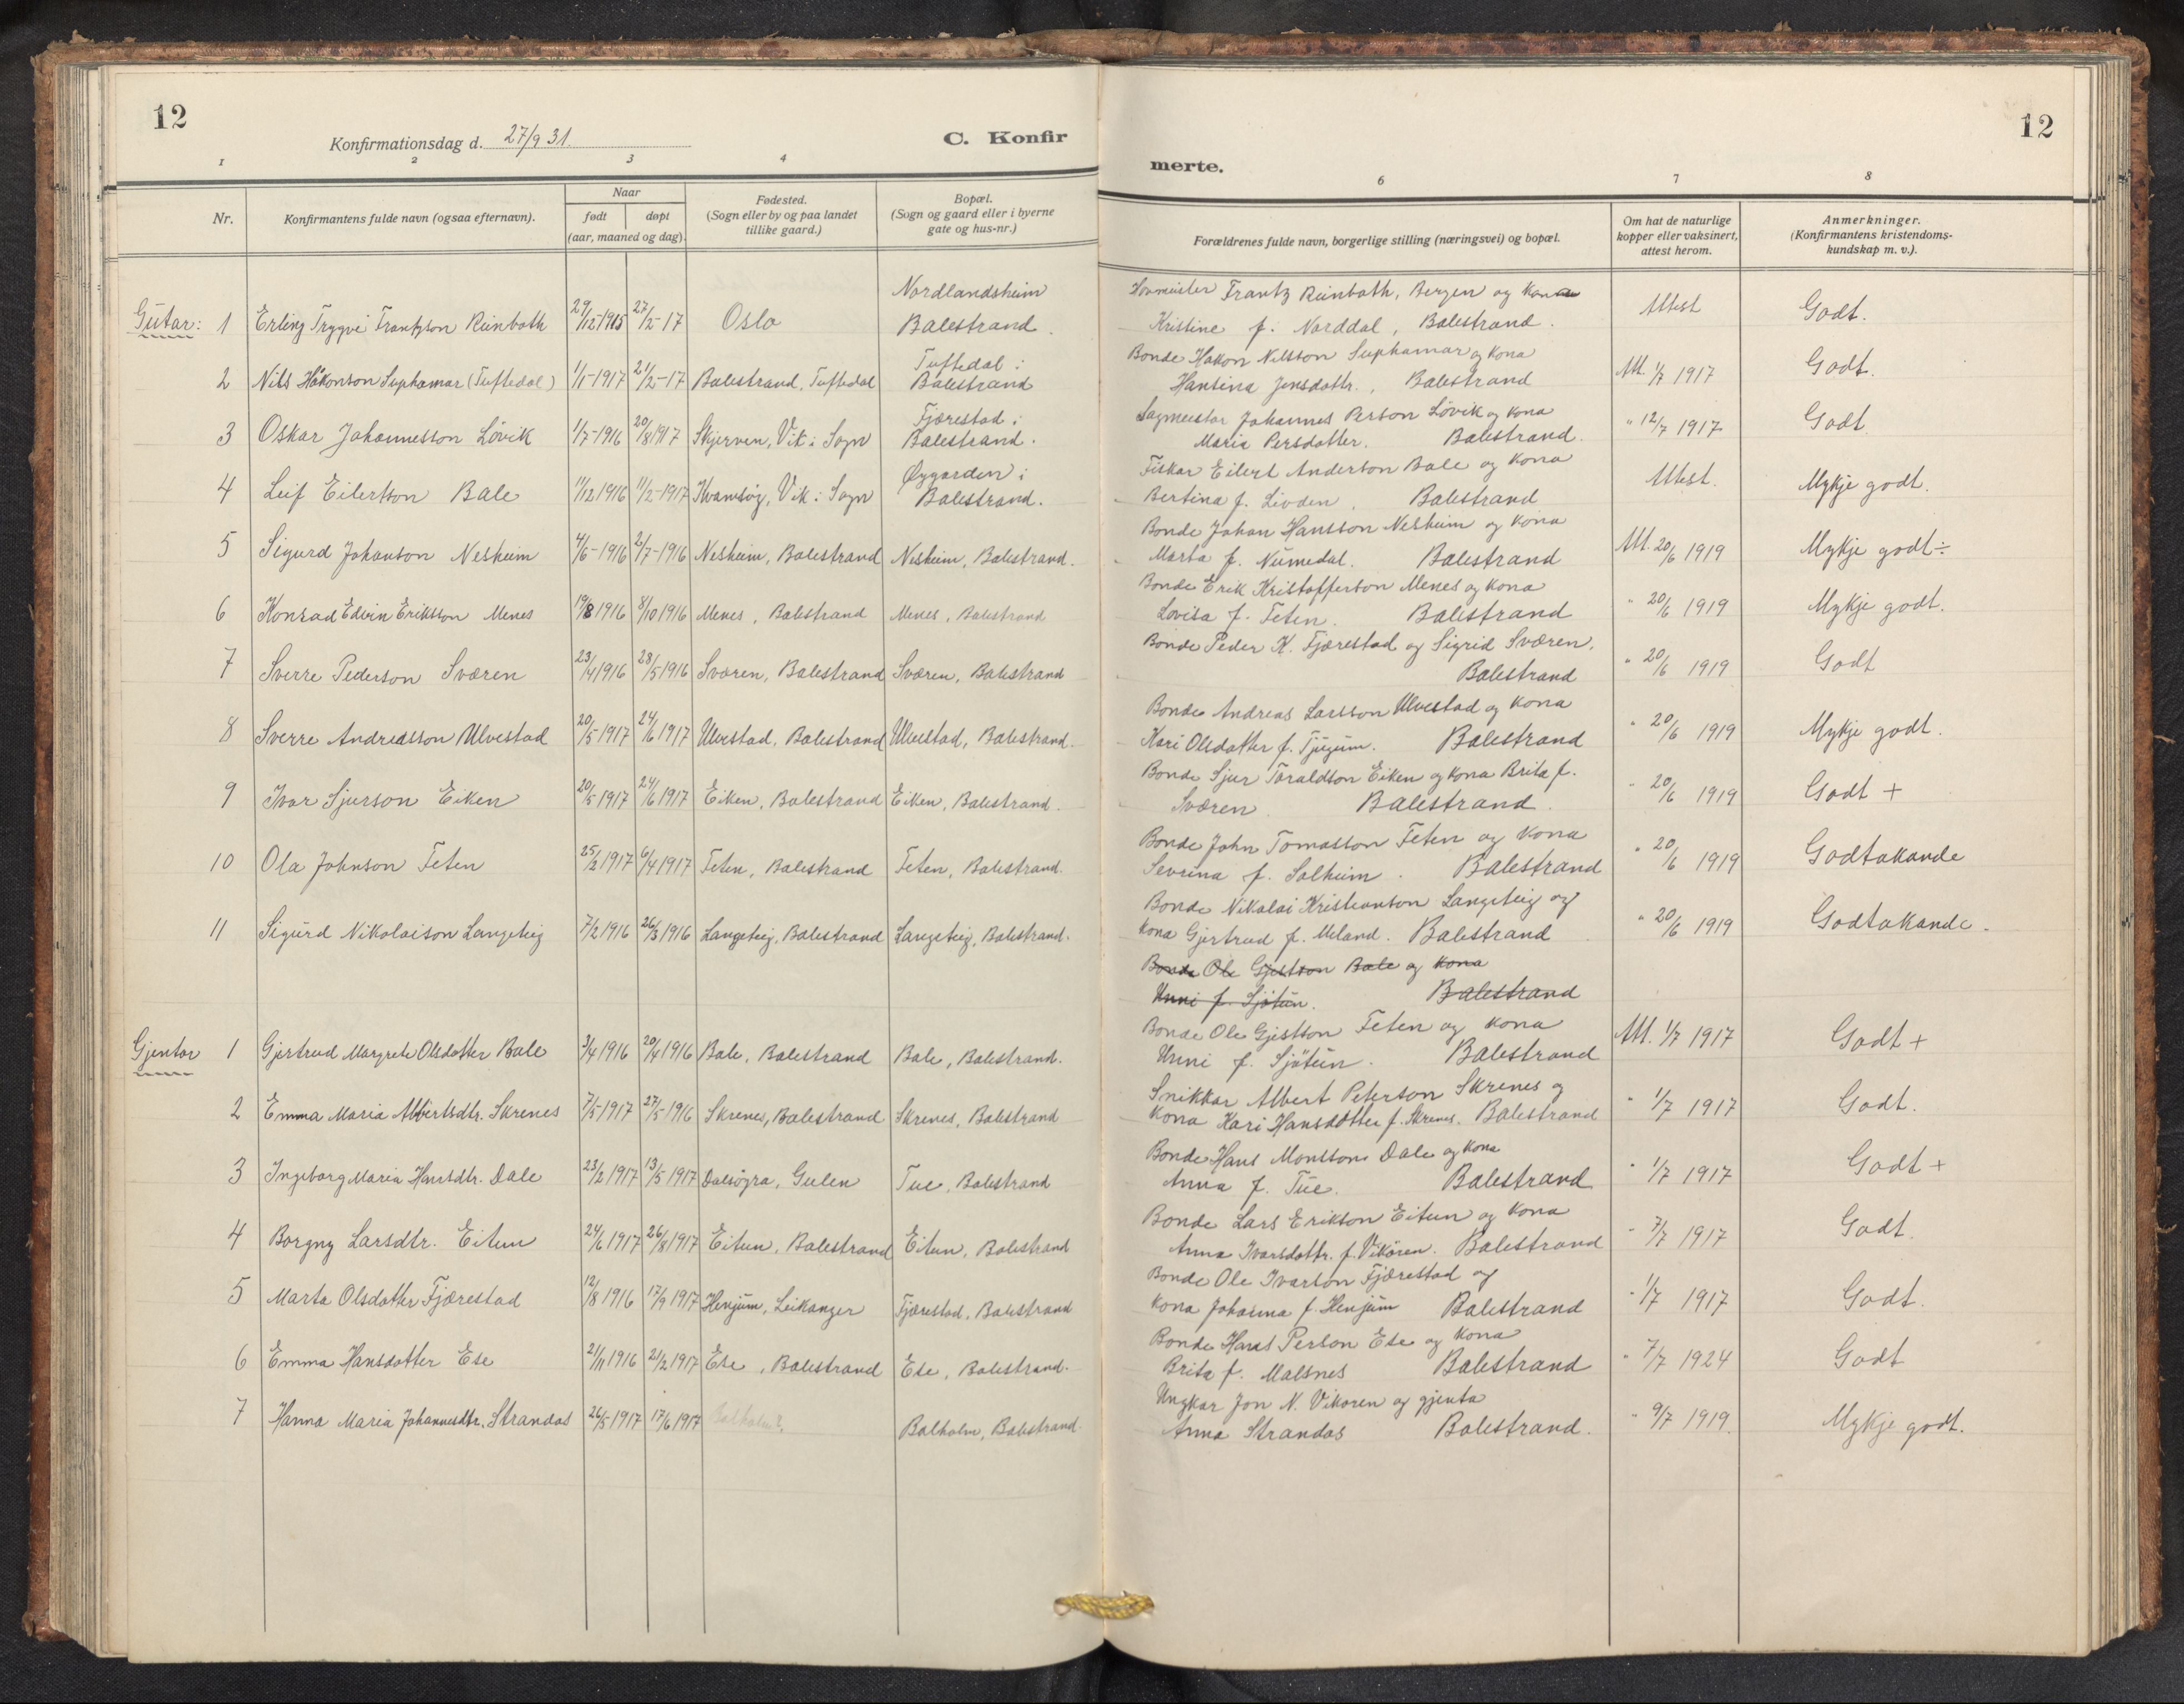 12
Konfirmationsdag d. 27/9 31.
C. Konfir
1 2 3 4
Nr.
Konfirmantens fulde navn (ogsaa efternavn).
Naar
født døpt
(aar, maaned og dag).
Fødested.
(Sogn eller by og paa landet
tillike gaard.)
Bopæl.
(Sogn og gaard eller i byerne
gate og hus-nr.)
Gutar: 1 Erling Trygve Frantzson Reinboth 29/12-1915 27/2-17 Oslo Nordlandsheim
Balestrand.
2 Nils Håkonson Suphamar (Tuftedal) 1/1-1917 21/2-17 Balestrand, Tuftedal Tuftedal i
Balestrand
3 Oskar Johannesson Lövik 1/7-1916 20/8 1917 Skjerven, Vik i Sogn Fjærestad i
Balestrand.
4 Leif Eilertson Bale 11/12 1916 11/2-1917 Kvamsöy, Vik i Sogn Øygarden i
Balestrand.
5 Sigurd Johanson Nesheim 4/6-1916 2/7-1916 Nesheim, Balestrand Nesheim, Balestrand.
6 Konrad Edvin Eriksson Menes 19/8 1916 8/10 1916 Menes, Balestrand Menes, Balestrand
7 Sverre Pederson Sværen 23/4 1916 28/5 1916 Sværen, Balestrand Sværen, Balestrand
8 Sverre Andreasson Ulvestad 20/5 1917 24/6 1917 Ulvestad, Balestrand Ulvestad, Balestrand.
9 Ivar Sjurson Eiken 20/5 1917 24/6 1917 Eiken, Balestrand Eiken, Balestrand.
10 Ola Johnson Feten 25/2 1917 6/4 1917 Feten, Balestrand Feten, Balestrand.
11 Sigurd Nikolaison Langeteig 7/2 1916 26/3 1916 Langeteig, Balestrand Langeteig, Balestrand.
Gjentor 1 Gjertrud Margrete Olsdotter Bale 3/4 1916 20/4 1916 Bale, Balestrand Bale, Balestrand.
2 Emma Maria Albertsdtr. Skrenes 7/5 1917 27/5 1916 Skrenes, Balestrand Skrenes, Balestrand
3 Ingeborg Maria Hansdtr. Dale 23/2 1917 13/5 1917 Dalsöyra, Gulen Tue, Balestrand
4 Borgny Larsdtr. Eitun 24/6 1917 26/8 1917 Eitun, Balestrand Eitun, Balestrand
5 Marta Olsdotter Fjærestad 12/8 1916 17/9 1917 Henjum, Leikanger Fjærestad, Balestrand
6 Emma Hansdotter Ese 21/11 1916 21/2 1917 Ese, Balestrand Ese, Balestrand.
7 Hanna Maria Johannesdtr. Strandos 26/5 1917 17/6 1917 Balholm? Balholm, Balestrand
12
merte.
6 7 8
Forældrenes fulde navn, borgerlige stilling (næringsvei) og bopæl.
Om hat de naturlige
kopper eller vaksinert,
attest herom.
Anmerkninger.
(Konfirmantens kristendoms-
kundskap m. v.).
Hovmeister Frantz Reinboth, Bergen og kona
Kristine f. Norddal, Balestrand. Attest Godt.
Bonde Håkon Nilsson Suphamar og kona
Hansina Jensdottr., Balestrand Att. 1/7 1917 Godt.
Sagmeistar Johannes Person Lövik og kona
Maria Persdotter. Balestrand. " 12/7 1917 Godt
Fiskar Eilert Anderson Bale og kona
Bertina f. Livden. Balestrand Attest. Mykje godt.
Bonde Johan Hansson Nesheim og kona
Marta f. Numedal. Balestrand Att. 20/6 1919 Mykje godt ÷
Bonde Erik Kristofferson Menes og kona
Lovisa f. Feten. Balestrand " 20/6 1919 Mykje godt.
Bonde Peder K. Fjærestad og Sigrid Sværen.
Balestrand " 20/6 1919 Godt
Bonde Andreas Larsson Ulvestad og kona
Kari Olsdotter f. Tjugum. Balestrand " 20/6 1919 Mykje godt.
Bonde Sjur Toraldson Eiken og kona Brita f.
Sværen. Balestrand. " 20/6 1919 Godt +
Bonde John Tomasson Feten og kona
Sevrina f. Solheim. Balestrand " 20/6 1919 Godtakande
Bonde Nikolai Kristianson Langeteig og
kona Gjertrud f. Meland. Balestrand " 20/6 1919 Godtakande.
Bonde Ole Gjestson Bale og kona
Unni f. Sjötun. Balestrand
Bonde Ole Gjestson Feten og kona
Unni f. Sjötun. Balestrand Att. 1/7 1917 Godt +
Snikkar Albert Peterson Skrenes og
kona Kari Hansdotter f. Skrenes. Balestrand " 1/7 1917 Godt.
Bonde Hans Monsson Dale og kona
Anna f. Tue. Balestrand " 1/7 1917 Godt +
Bonde Lars Erikson Eitun og kona
Anna Ivarsdottr. f. Vikören. Balestrand " 7/7 1917 Godt.
Bonde Ole Ivarson Fjærestad og
kona Johanna f. Henjum Balestrand " 1/7 1917 Godt.
Bonde Hans Person Ese og kona
Brita f. Malsnes Balestrand " 7/7 1924 Godt
Ungkar Jon N. Vikoren og gjenta
Anna Strandos Balestrand. " 9/7 1919. Mykje godt.